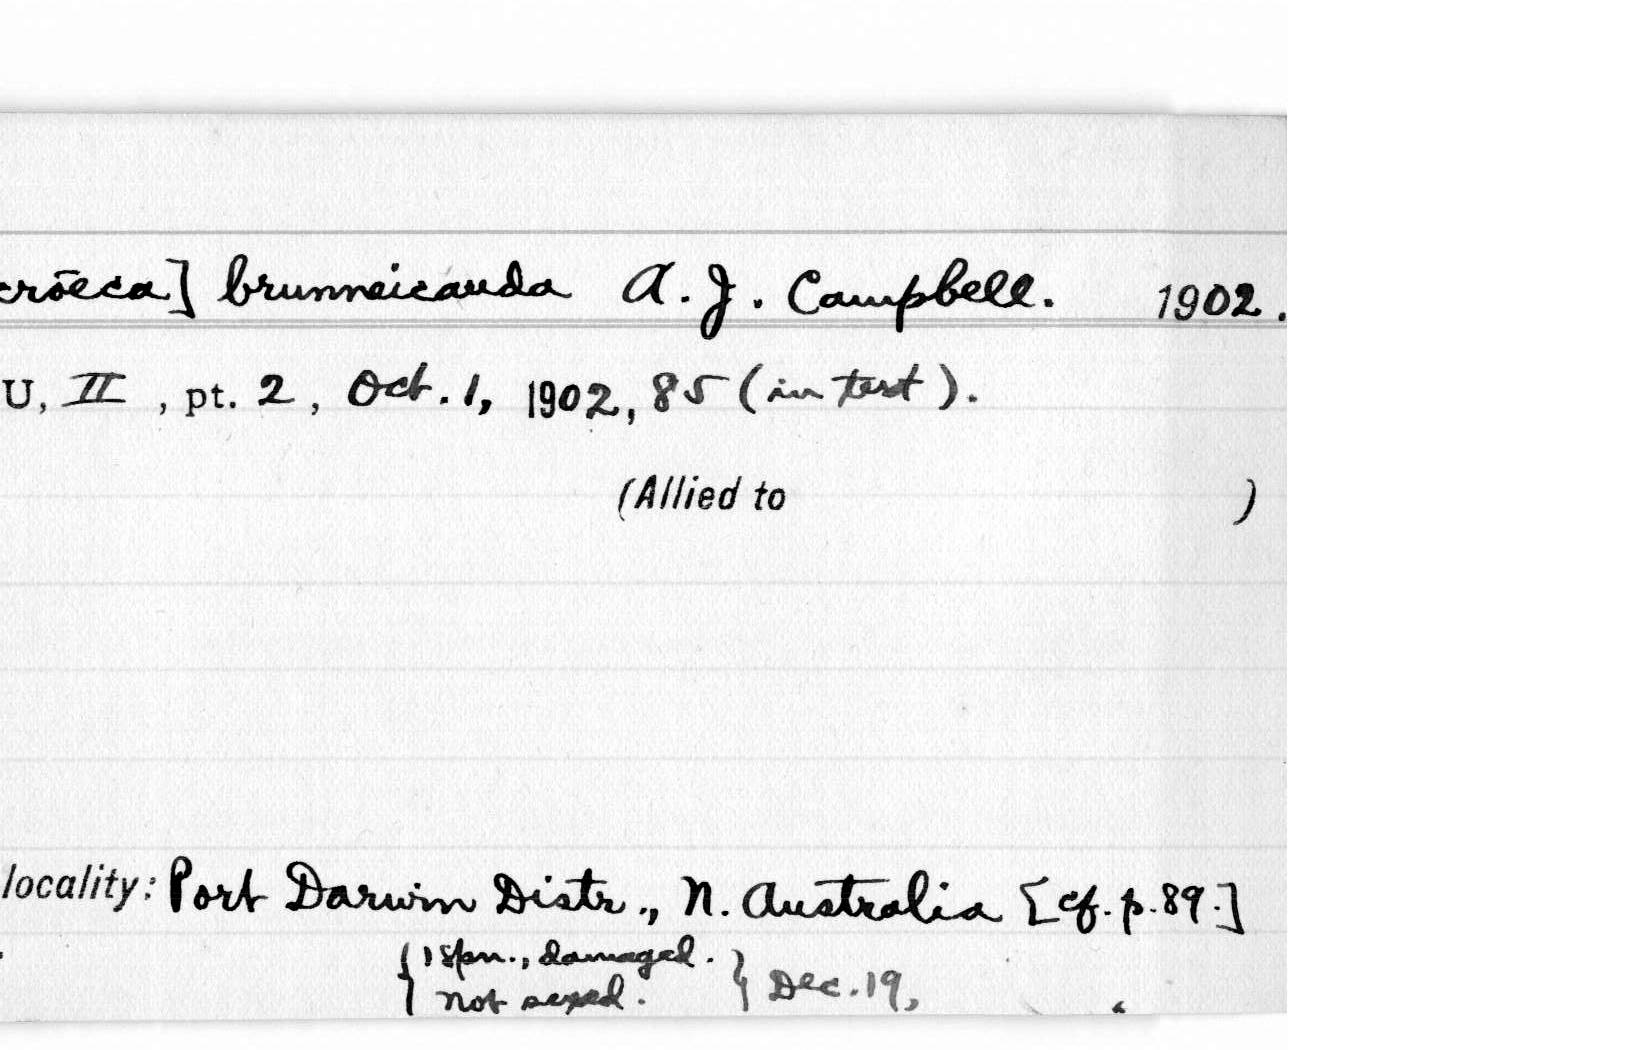 cröeca] brunneicauda A. J. Campbell. 1902.
U, II, pt. 2, Oct. 1, 1902, 85 (in text).
(Allied to )
locality: Port Darwin Distr., N. Australia [cf. p. 89.]
{1 spn., damaged.
not sexed.} Dec. 19,